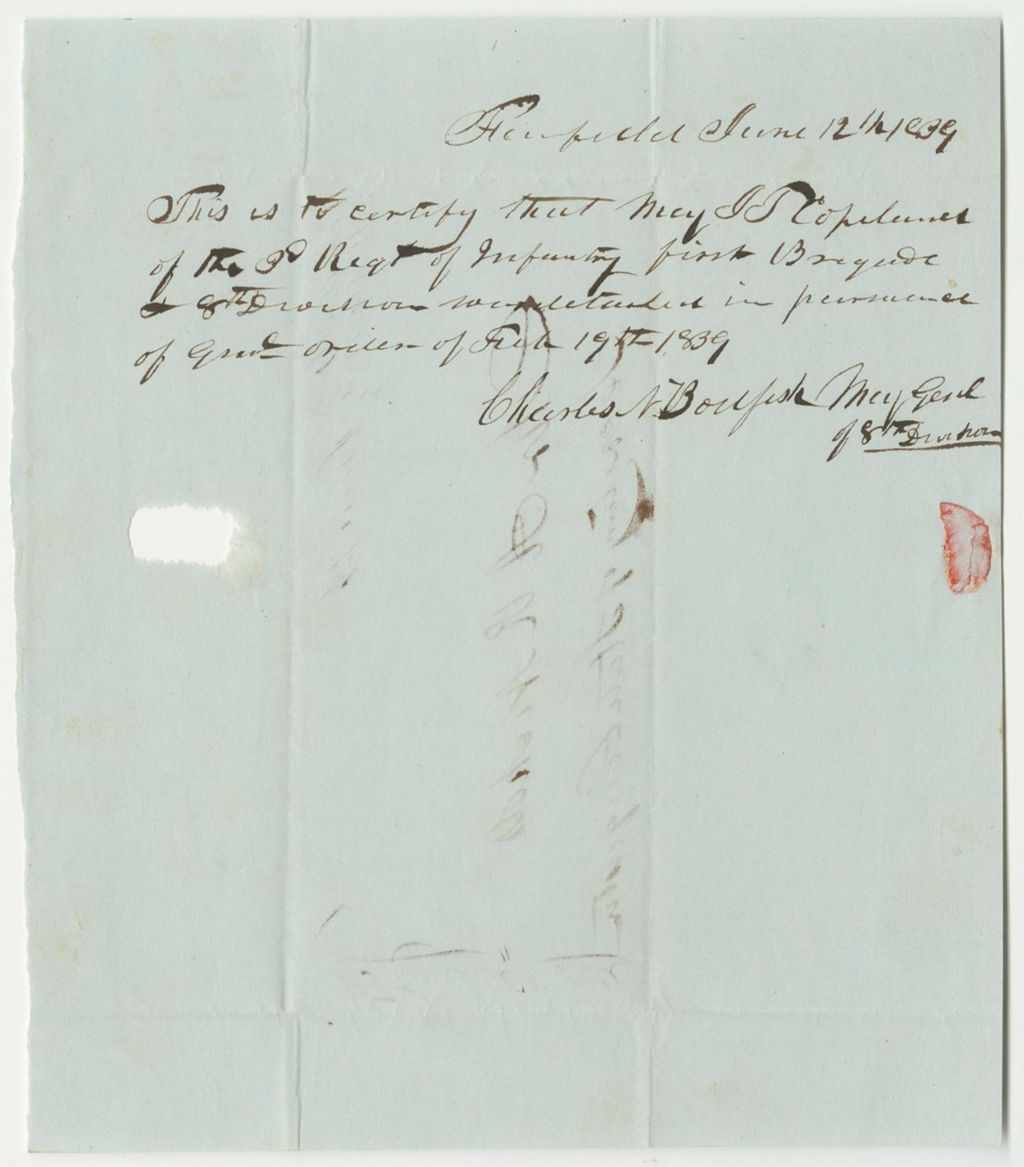 Fairfield June 12th 1839
This is to certify that Maj J T Copeland
of the 3d Regt of Infantry first Brigade
& 8th Division was detached in pursuance
of Genl order of Feb 19th 1839
Charles N. Bodfish Maj Genl
of 8th Division